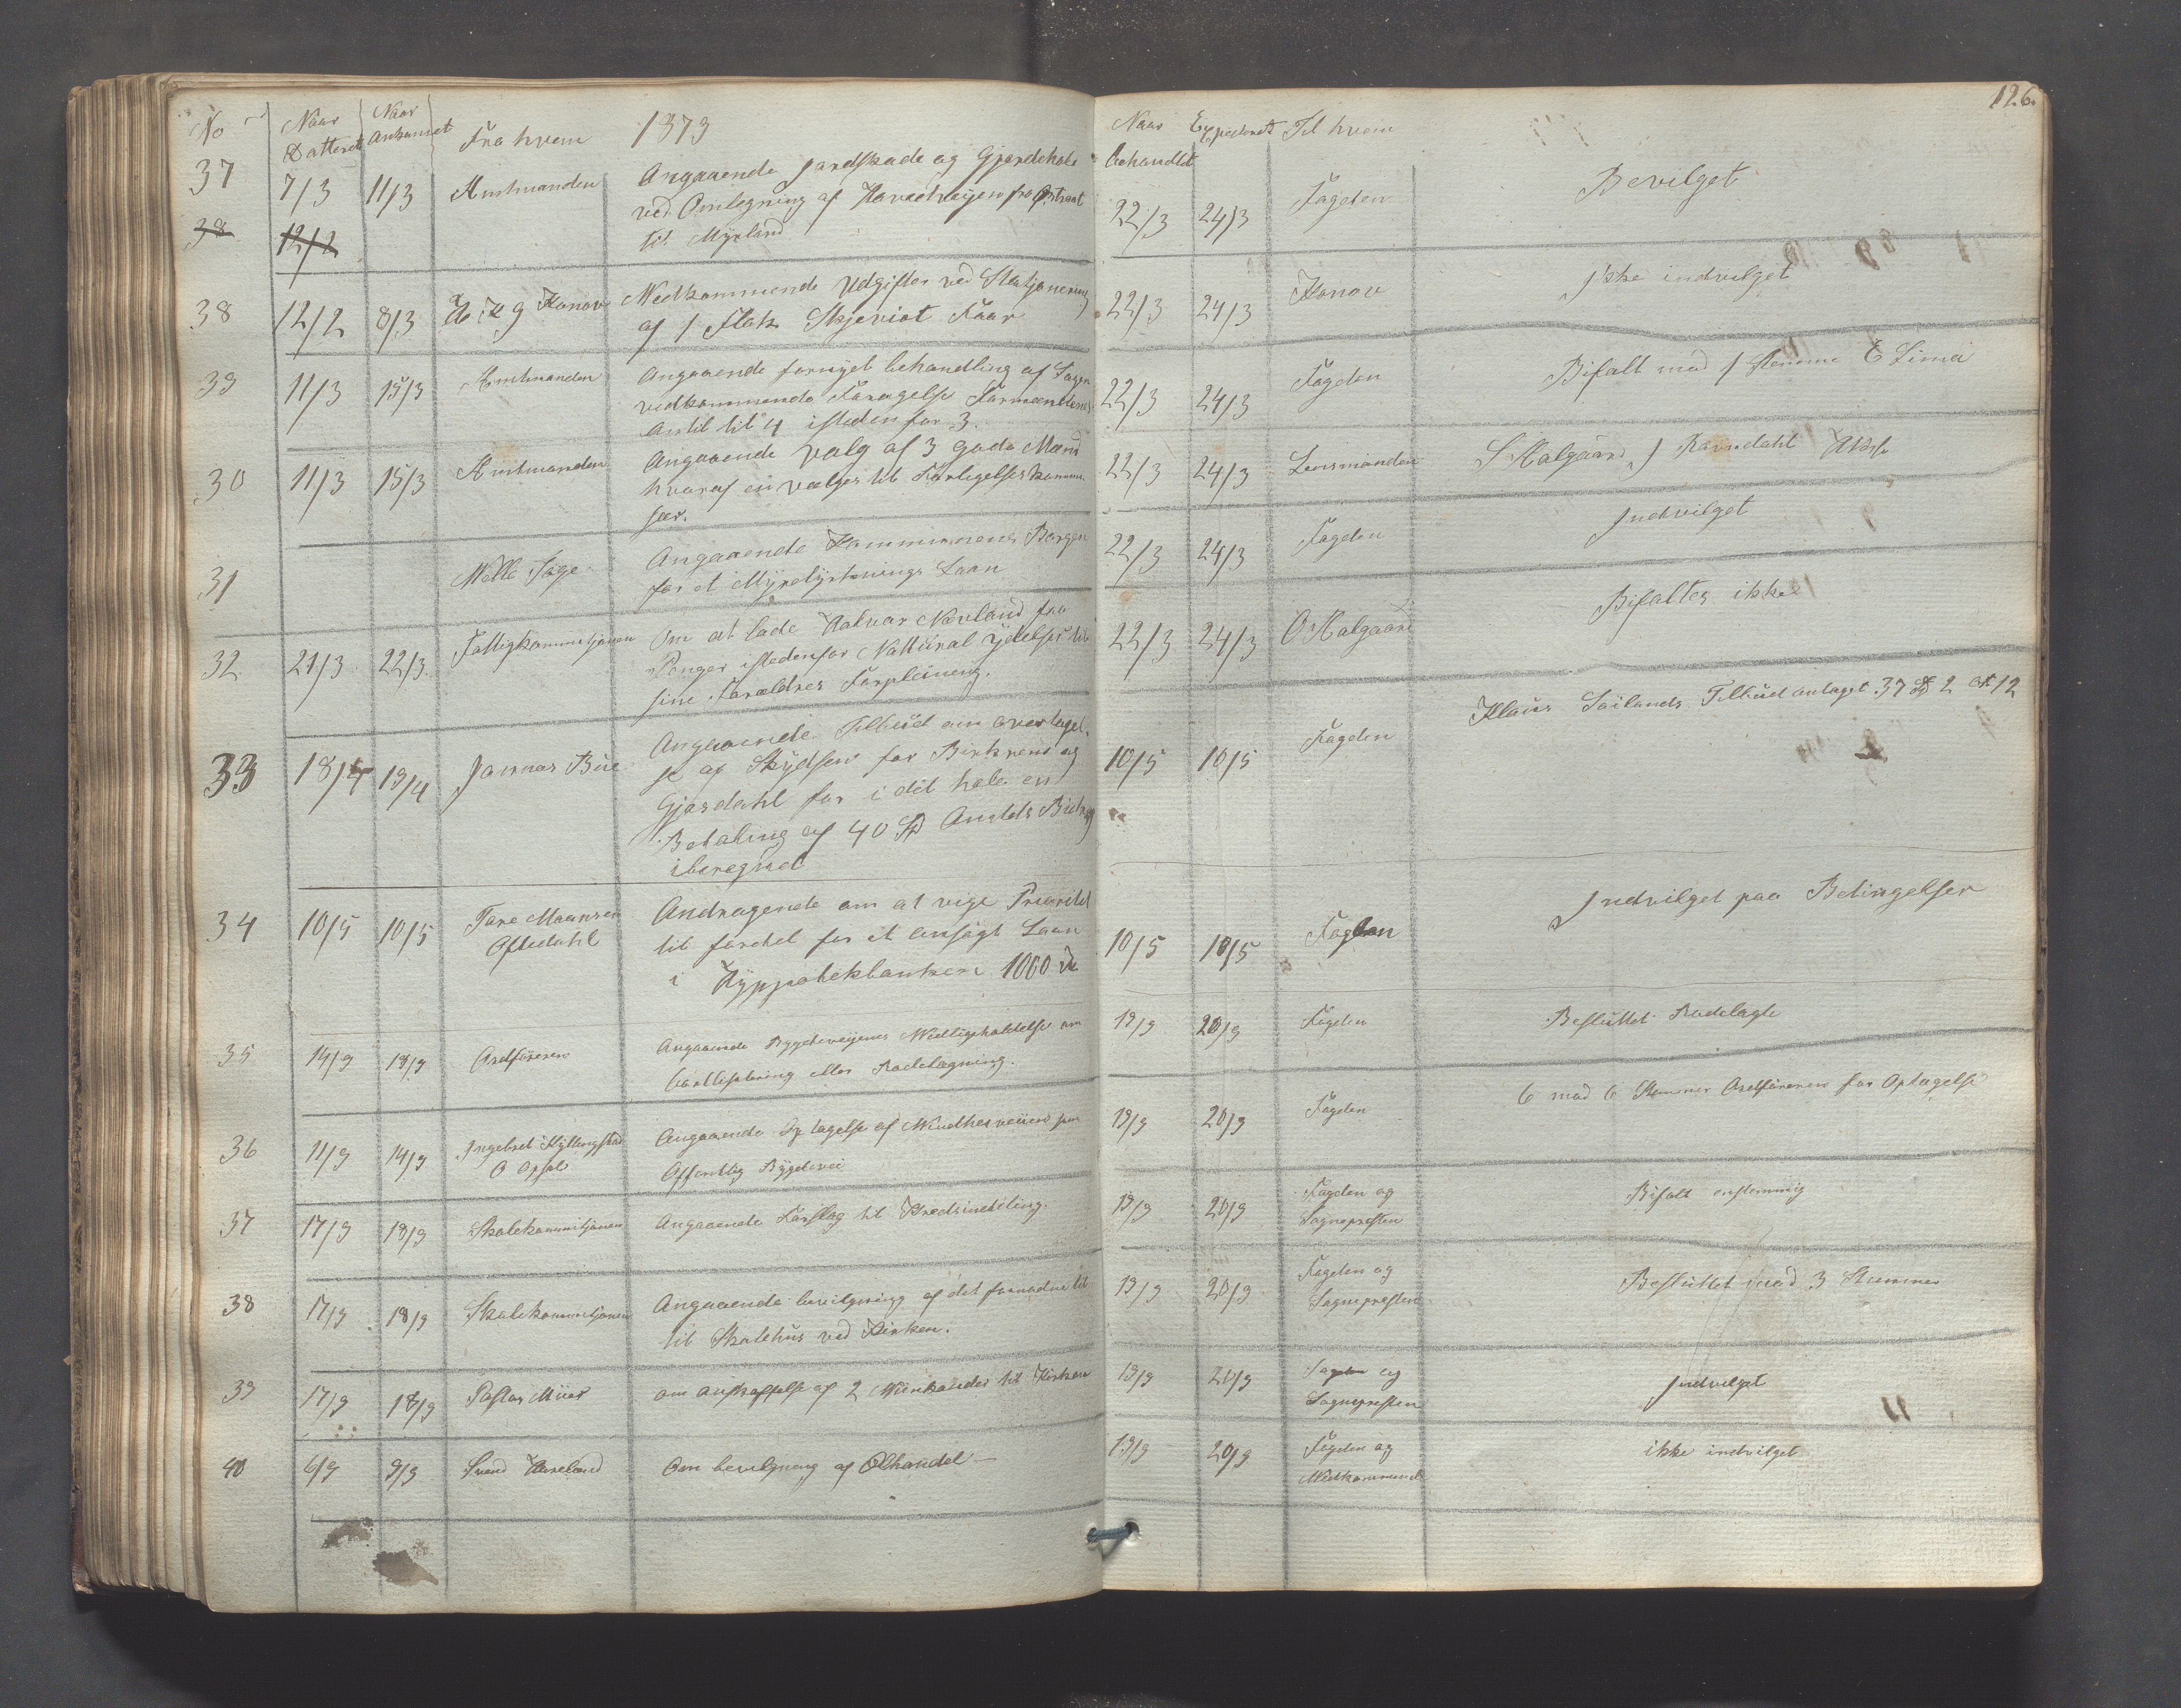 No Naar Datteret Naar Ankommet Fra hvem 1873
37 7/3 11/3 Amtmanden Angaaende Jordskade og Gjerdehold
ved Omlegning af Hovedveijen fra
38 12/2 til Myrland
38 12/2 8/3 Konow Vedkommende Udgifter ved Stasjonering
af 1 Flok Skjeviot Faar
39 11/3 15/3 Amtmanden Angaaende fornyet behandling af Sagen
vedkommende Forøgelse Formændenes
Antil til 4 isteden for 3.
30 11/3 15/3 Amtmanden Angaaende Valg af 3 gode Mænd
hvoraf en vælges til Forligelses kommi-
sær.
31 Angaaende Kommunens Borgen
for et Myrdyrknings Laan
32 21/3 22/3 Fattigkommisjonen Om at lade Halvor Nevland faa
Penger istedenfor Nattural Ydelser til
sine Forældres Forpleining.
33 18/4 19/4 Jonnas Bue Angaaende Tilbud om overtagel-
se af Skydsen for Birkrem og
Gjæsdahl for i det hele en
Betaling af 40 Spd Amtets Bidrag
iberegnet
34 10/5 10/5 Tore Maansen
Oftedahl
Andragende om at vige Prioritet
til fordel for et ansøgt Laan
i Hyppotekbanken 1000 Spd
35 14/9 18/9 Ordføreren Angaaende Bygdeveijenes Vedligeholdelse om
bortlisitering eller Rodelægning.
36 11/9 14/9 Ingebret Kyllingstad
O Opsal
Angaaende Optagelse af som
Offentlig Bygdevei
37 17/9 18/9 Skolekommisjonen Angaaende Forslag til Kredsinddeling.
38 17/9 18/9 Skolekommisjonen Angaaende bevilgning af det fornødne til
til Skolehus ved Kirken.
39 17/9 18/9 Pastor om anskaffelse af 2 til Kirken
40 6/9 9/9 Svend Haveland Om bevilgning af Ølhandel —
126.
Naar behandlet Expederet Til hvem
22/3 24/3 Fogden Bevilget
22/3 24/3 Konow Ikke indvilget
22/3 24/3 Fogden Bifalt mod 1 Stemme E Lima
22/3 24/3 Lensmanden S Kalgaard, J Ravndahl
22/3 24/3 Fogden Indvilget
22/3 24/3 O Kalgaard Bifaltes ikke
10/5 10/5 Fogden Klaus Sælands Tilbud antaget 37 Spd 2 Ort 12
10/5 10/5 Fogden Indvilget paa Betingelser
19/9 20/9 Fogden Besluttet Rodelagte
19/9 20/9 Fogden 6 mod 6 Stemmer Ordføreren for Optagelse
19/9 20/9 Fogden og
Sognepresten
Bifalt enstemmig
19/9 20/9 Fogden og
Sognepresten
Besluttet mod 3 Stemmer
19/9 20/9 Fogden og
Sognepresten
Indvilget
19/9 20/9 Fogden og
Vedkommende
ikke indvilget